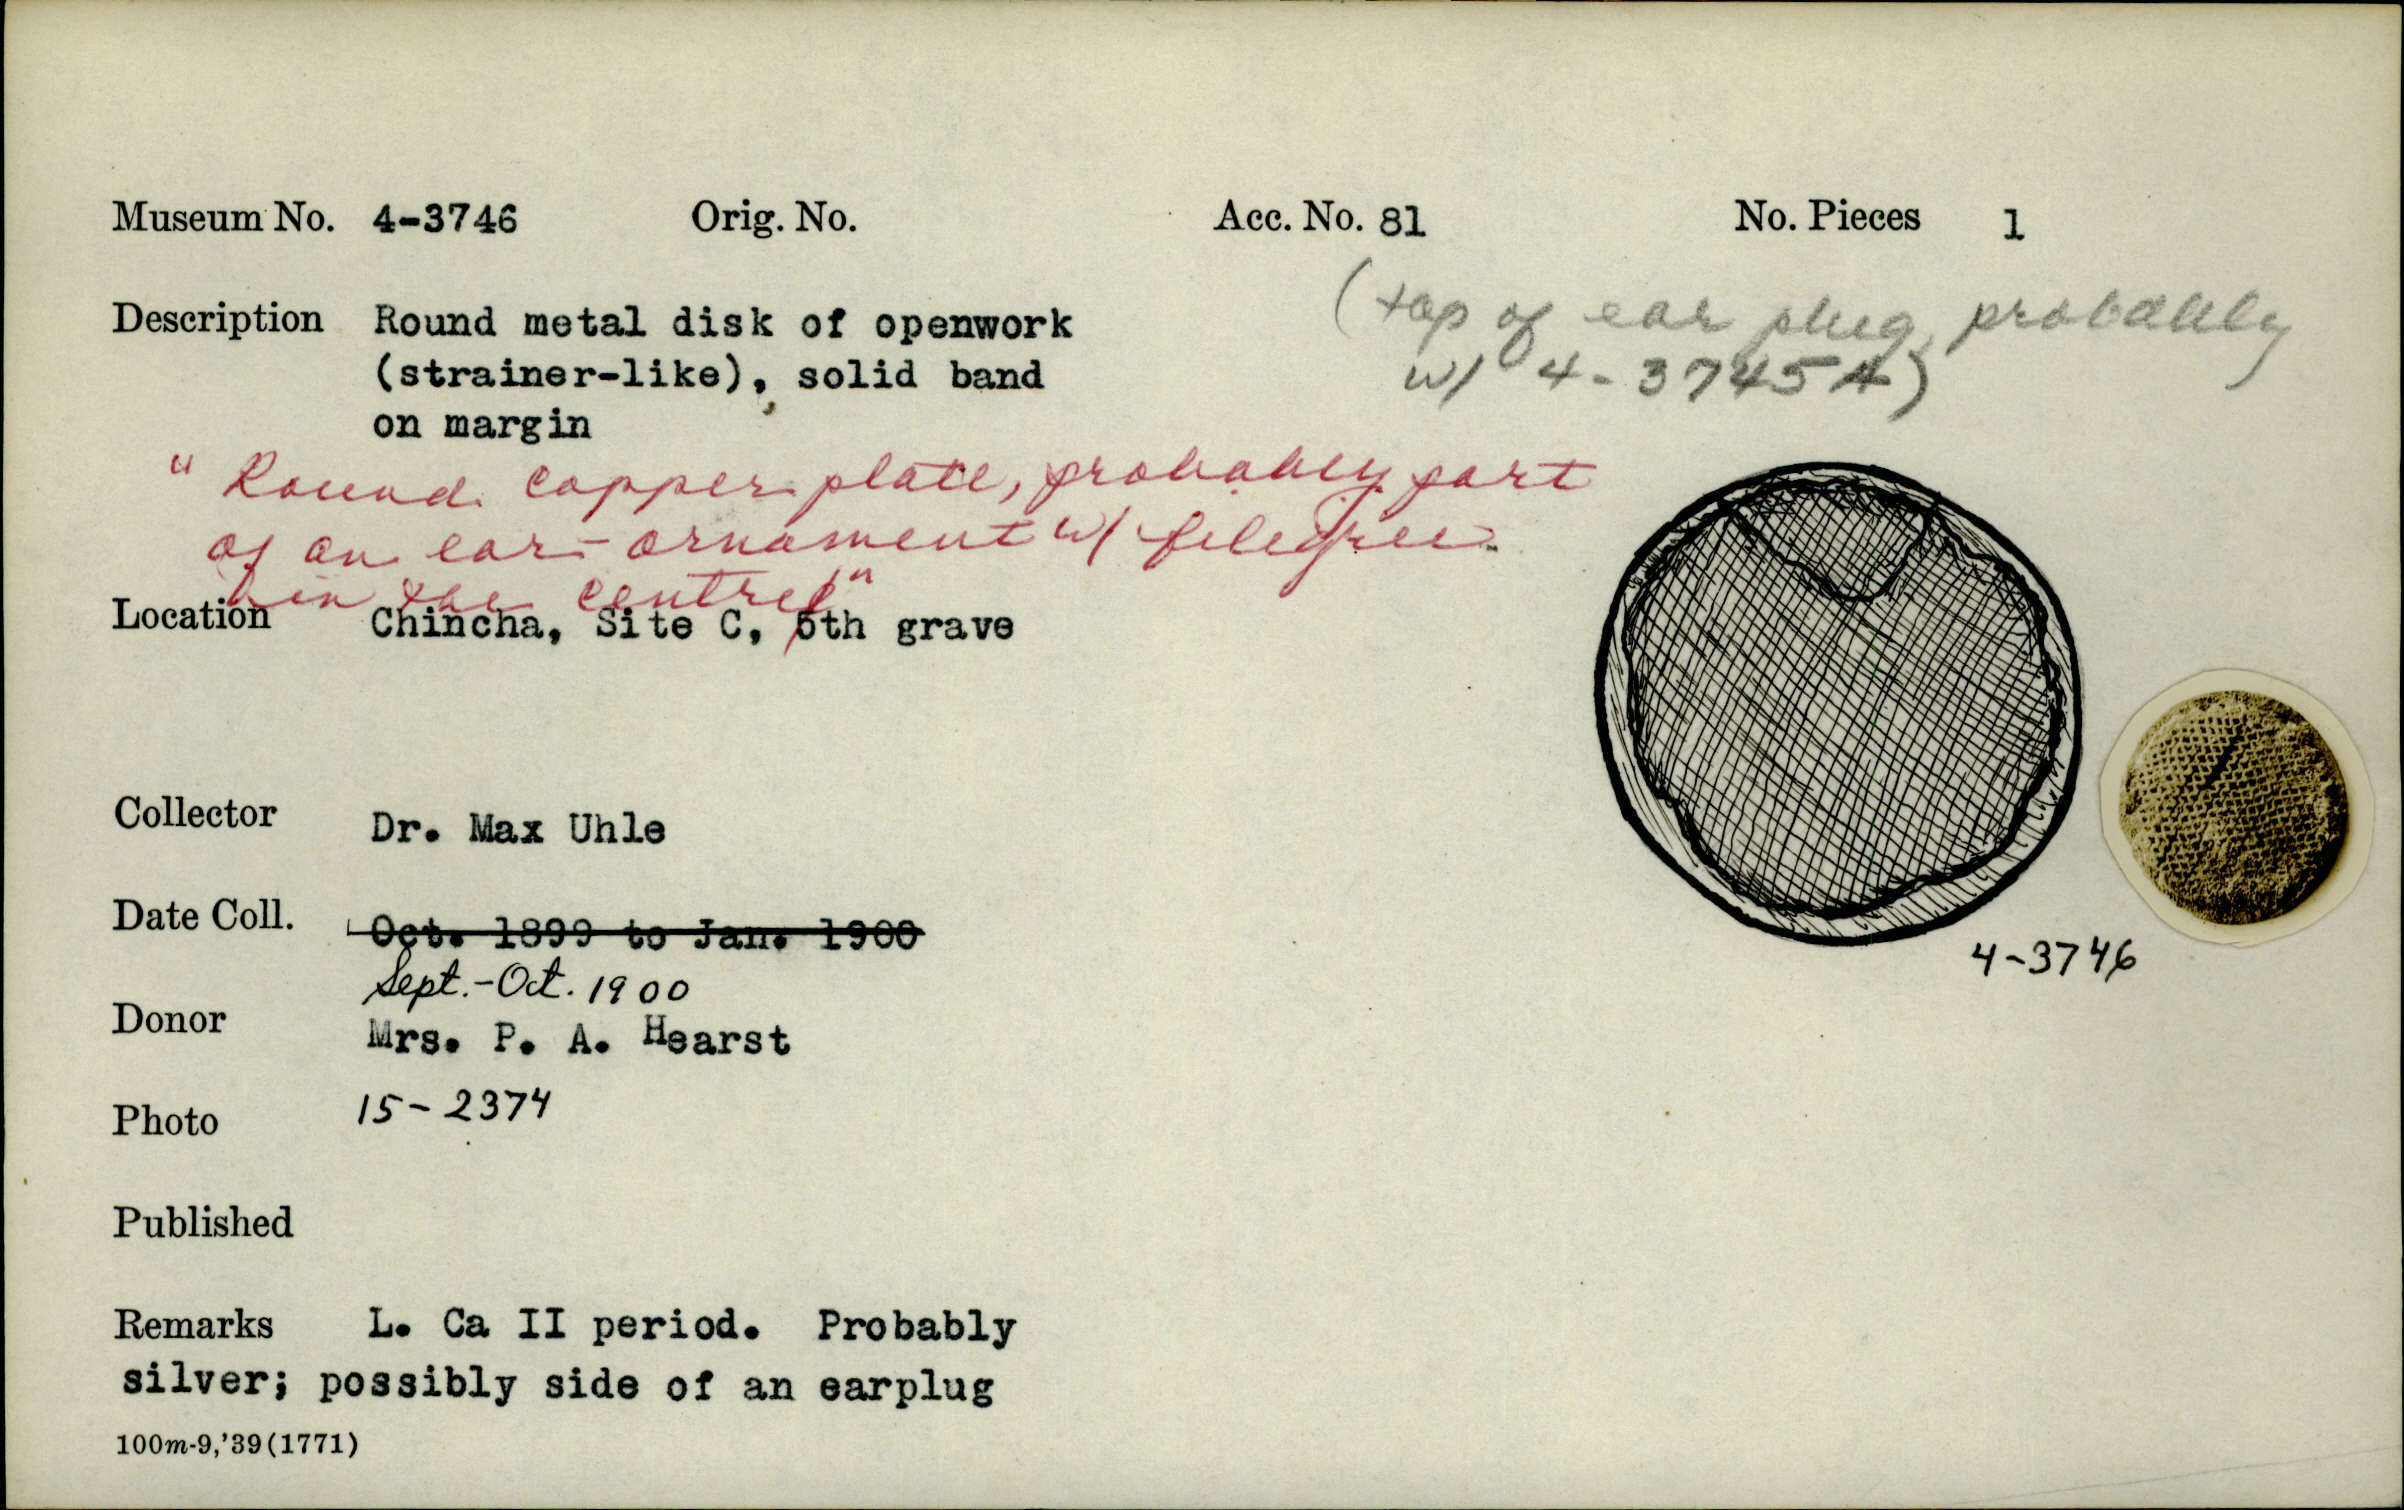 Museum No. 4-3746 Orig. No. Acc. No. 81 No. Pieces 1
(top of ear plug, probably
w/ 4-3745A)
Description Round metal disk of openwork
(strainer-like), solid band
on margin
"Round copper plate, probably part
of an ear-ornament w/ filegree
in the centre"
Location Chincha, Site C, th grave
Collector Dr. Max Uhle
Date Coll. Oct. 1899 to Jan. 1900
Sept.-Oct. 1900
Donor Mrs. P. A. Hearst
Photo 15-2374
Published
Remarks L. Ca II period. Probably
silver; possibly side of an earplug
100m-9,'39(1771)
4-3746